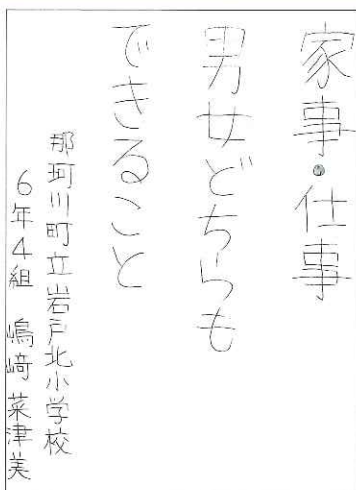 家事・仕事
男女どちらも
できること
那珂川町立岩戸北小学校
6年4組 嶋﨑 菜津美